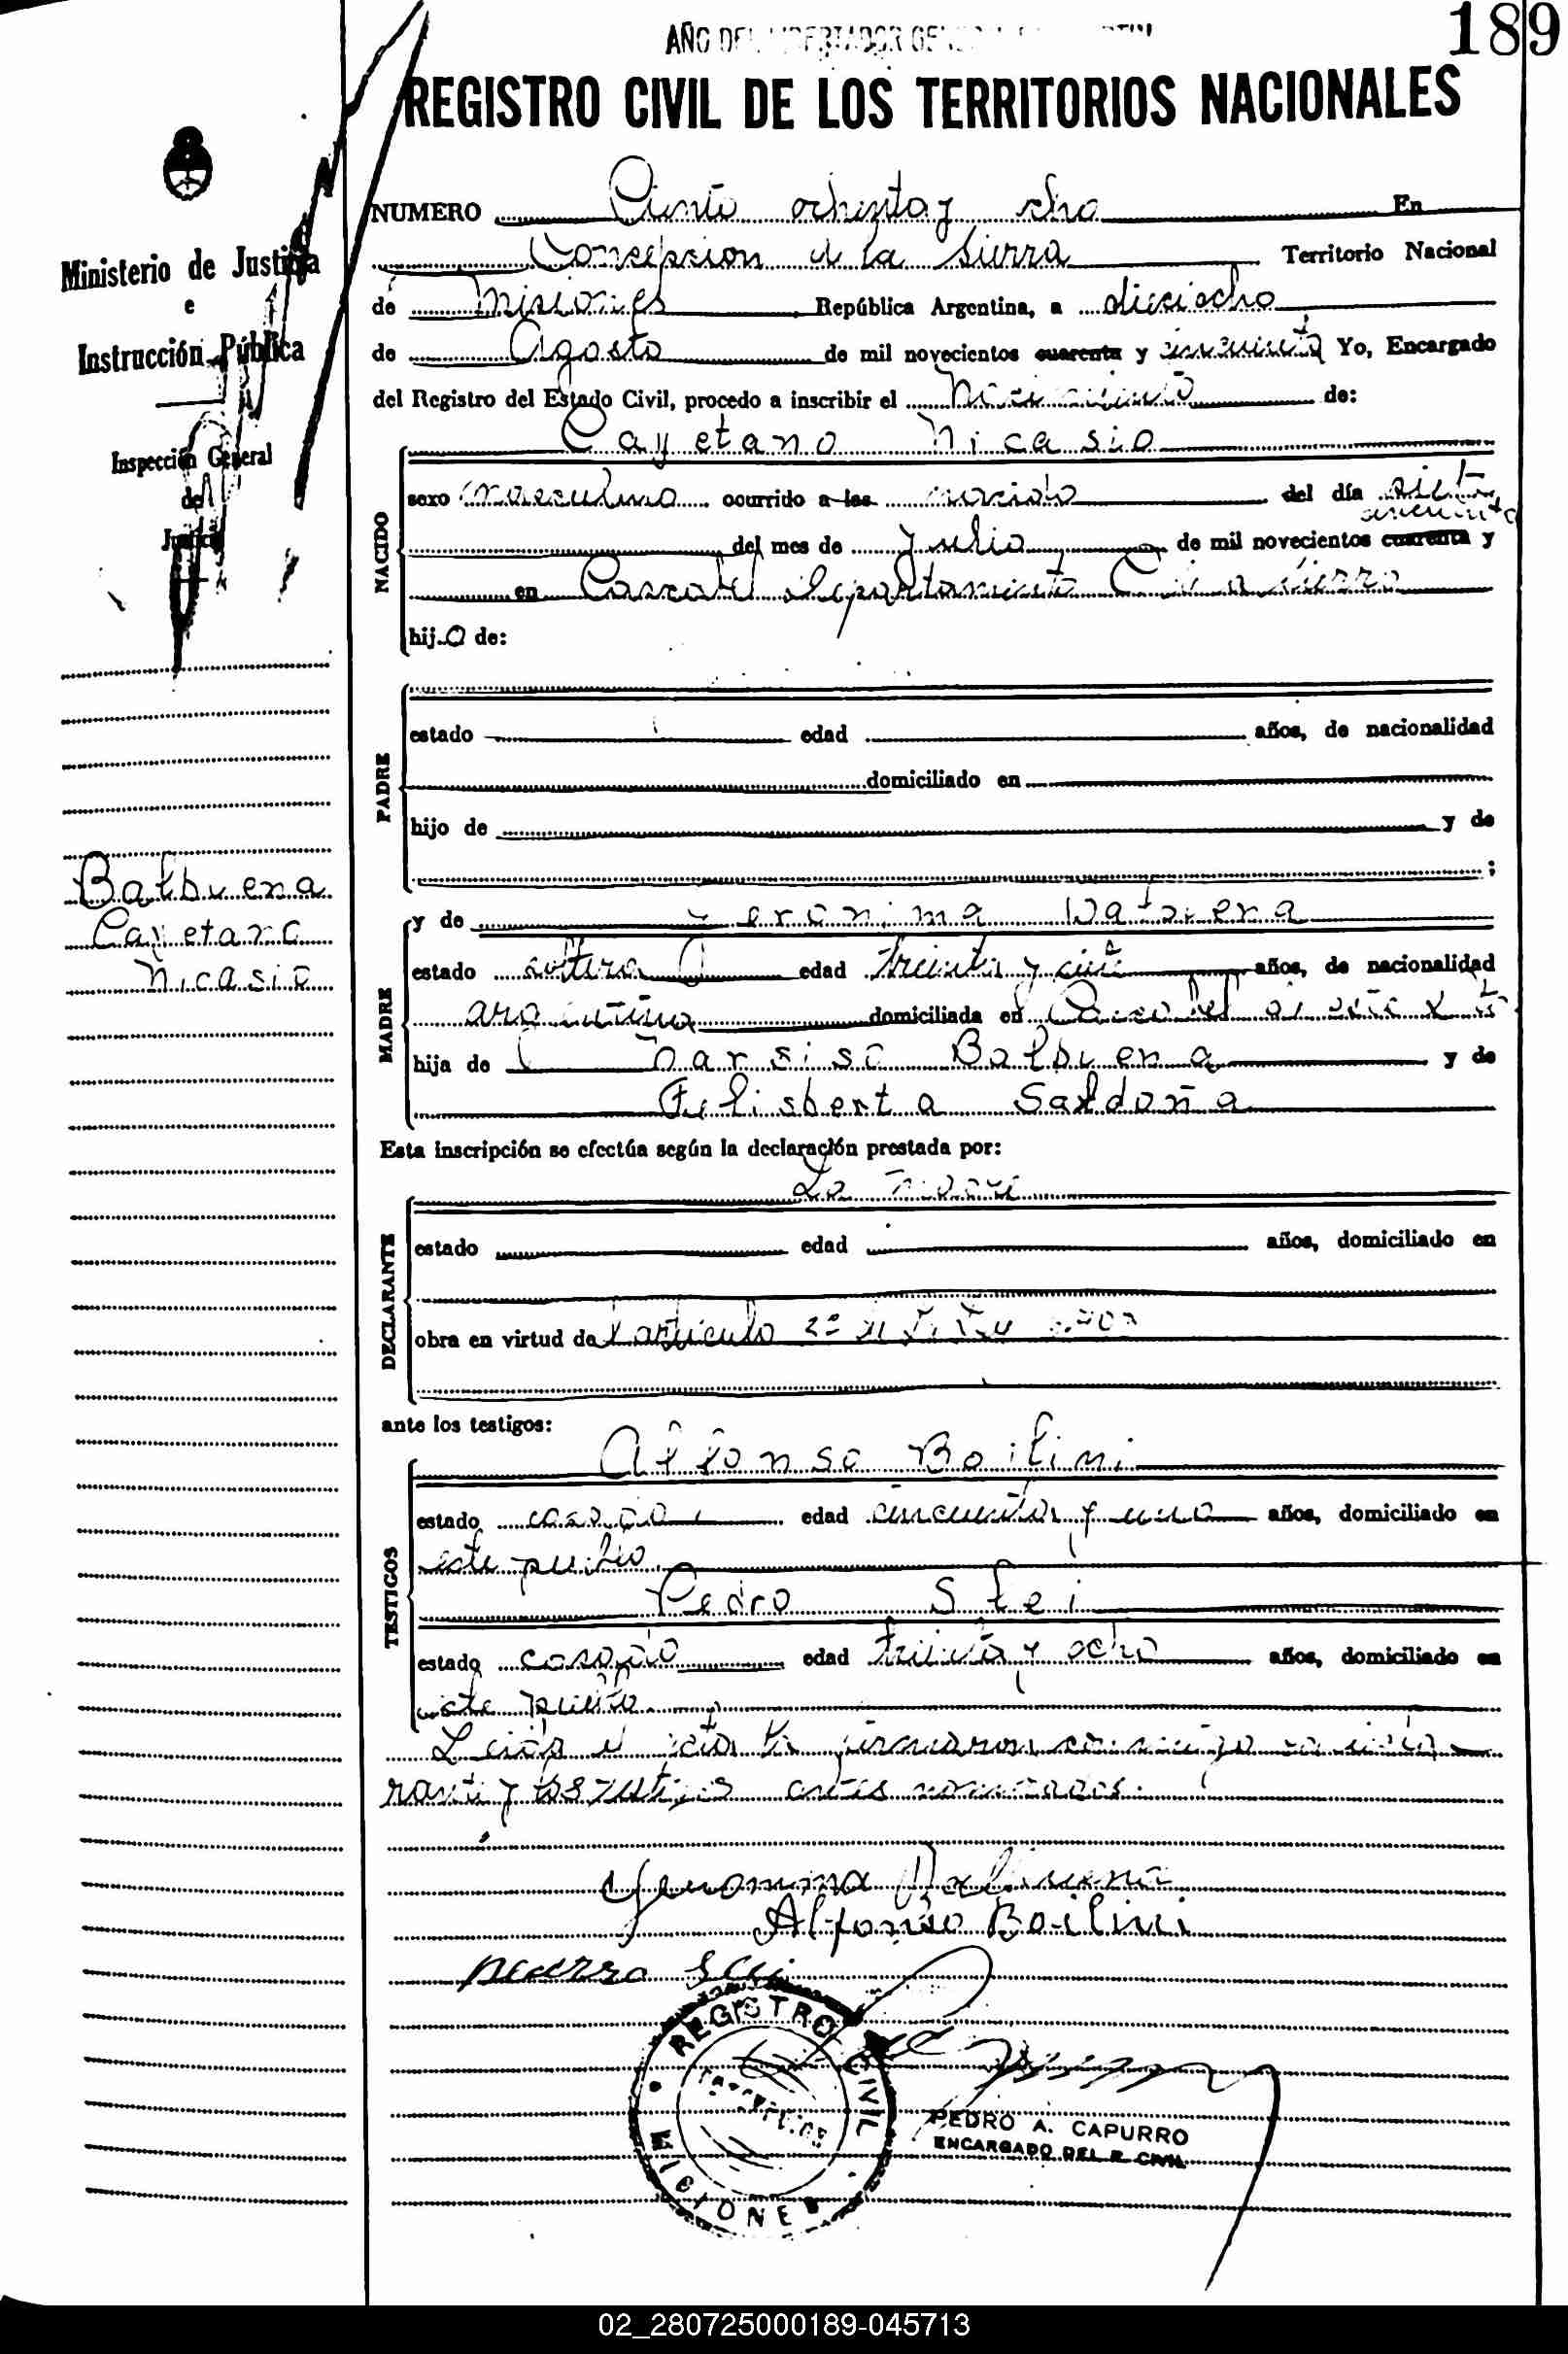 189
AÑO DEL LIBERTADOR GENERAL
REGISTRO CIVIL DE LOS TERRITORIOS NACIONALES
Ministerio de Justicia
e
Instrucción Pública
Inspección General
de
Justicia
Balbuena
Cayetano
Nicasio
NUMERO Ciento ochenta y ocho En
Concepcion de la Sierra Territorio Nacional
de Misiones República Argentina, a dieciocho
de Agosto de mil novecientos cuarenta y cincuenta Yo, Encargado
del Registro del Estado Civil, procedo a inscribir el Nacimiento de:
Cayetano Nicasio
NACIDO
sexo masculino ocurrido a las del día siete
cincuenta
del mes de Julio de mil novecientos cuarenta y
en departamento C. de la Sierra
hijo de:
PADRE
estado edad años, de nacionalidad
domiciliado en
hijo de y de
;
MADRE
y de Geronima Balbuena
estado soltera edad treinta y años, de nacionalidad
argentina domiciliada en
hija de Narsiso Balbuena y de
Felisberta Saldoña
Esta inscripción se efectúa según la declaración prestada por:
La madre
DECLARANTE
estado edad años, domiciliado en
obra en virtud del articulo 2º
ante los testigos:
TESTIGOS
Alfonso Boilini
estado casado edad cincuenta y uno años, domiciliado en
este pueblo
Pedro Stei
estado casado edad treinta y ocho años, domiciliado en
este pueblo
Leida el acta la firmaron conmigo la decla
rante y los testigos antes nombrados.
Geronima Balbuena
Alfonso Boilini
REGISTRO CIVIL
MISIONES
PEDRO A. CAPURRO
ENCARGADO DEL R. CIVIL
02_280725000189-045713